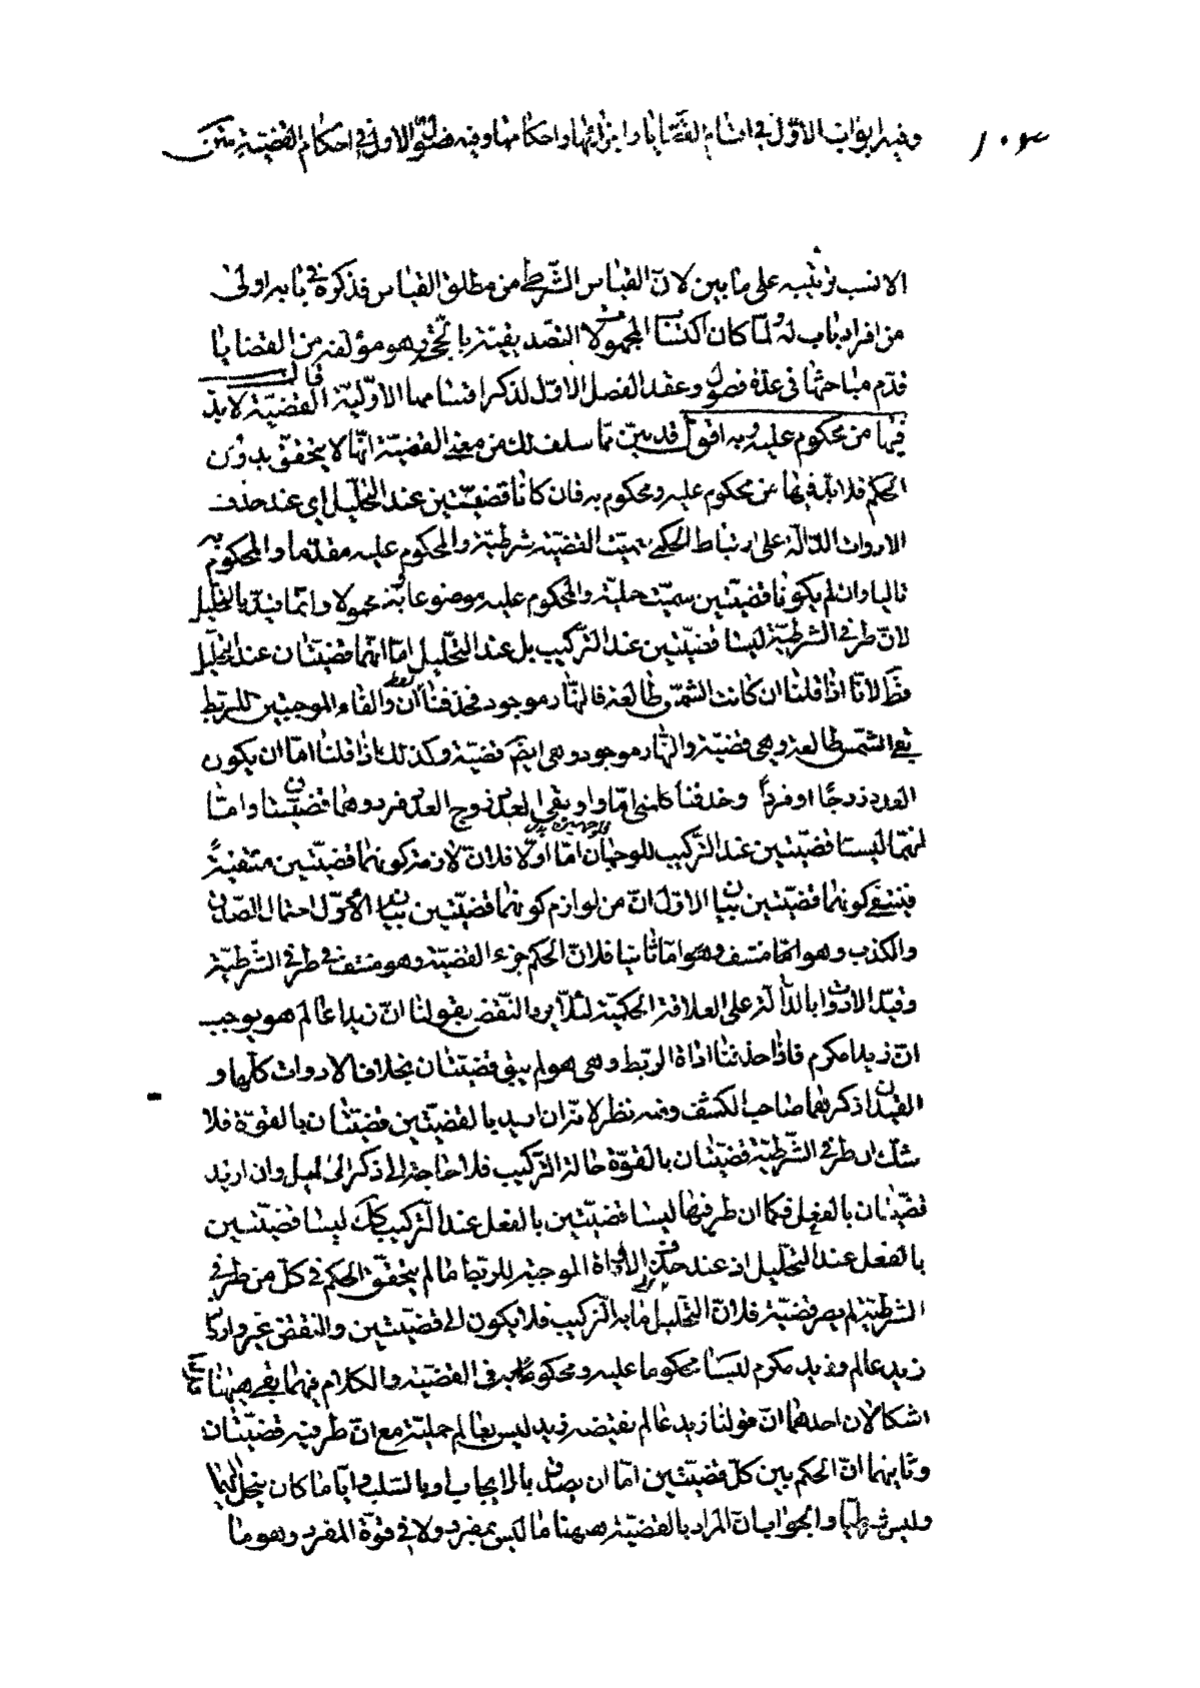 ١٠٣ وفيه ابواب الاوّل في اقسام القضايا واجزائها واحكامها وفيه فصول الاول في احكام القضية متن
الانسب ترتيبه على ما بين لانّ القياس الشّرطي من مطلق القياس فذكره في بابه اولى
من افراد باب له ولمّا كان اكتساب المجهولات التصديقيّة بالحجّة وهو مؤلفة من القضايا
قدّم مباحثها في عدّة فصول وعقد الفصل الاوّل لذكر اقسامها الاوّليّة قال القضيّة لا بدّ
فيها من محكوم عليه وبه اقول قد بيّن ممّا سلف لك من معنى القضيّة انّها لا يتحقّق بدون
الحكم فلا بدّ فيها من محكوم عليه ومحكوم به فان كانا قضيّتين عند التحليل اي عند حذف
الادوات الدّالّة على ارتباط الحكمي سمّيت القضيّة شرطيّة والمحكوم عليه مقدّما والمحكوم به
تاليا وان لم يكونا قضيّتين سمّيت حمليّة والمحكوم عليه موضوعا وبه محمولا وانّما قيّد بالتحليل
لانّ طرفي الشرطيّة ليستا قضيّتين عند التركيب بل عند التحليل امّا انّهما قضيّتان عند التحليل
فظ لانّا اذا قلنا ان كانت الشّمس طالعة فالنّهار موجود فحذفنا لفظ ان والفاء الموجبتين للربط
بقي الشّمس طالعة وهي قضيّة والنّهار موجود وهي ايضا قضيّة وكذلك اذا قلنا امّا ان يكون
العدد زوجًا او فردًا وحذفنا كلمتي امّا واو بقي العدد زوج العدد فرد وهما قضيّتان وامّا
انّهما ليستا قضيّتين عند التّركيب للوجهين امّا اوّلا فلانّ لازمة كونهما قضيّتين منتفيةً
فينتفي كونهما قضيّتين بيان الاوّل انّ من لوازم كونهما قضيّتين احتمال الصّدق
والكذب وهو ايضا منتف وهو امّا ثانيا فلانّ الحكم جزء القضيّة وهو منتف في طرفي الشّرطيّة
وقيّد الادوات بالدّالّة على العلاقة الحكميّة لئلّا يرد النّقض بقولنا انّ زيدا عالم هو يوجب
انّ زيدا مكرم فاذا حذفنا اداة الربط وهي هو لم يبق قضيّتان بخلاف الادوات كلّها و
القيدان ذكرهما صاحب الكشف وفيه نظر لانّه ان اريد بالقضيّتين قضيّتان بالقوّة فلا
شك ان طرفي الشّرطيّة قضيّتان بالقوّة حالة التّركيب فلا حاجة الى ذكر التحليل وان اريد
قضيّتان بالفعل فكما ان طرفيها ليستا قضيّتين بالفعل عند التّركيب كك ليستا قضيّتين
بالفعل عند التّحليل اذ عند حذف الاداة الموجبة للربط ما لم يتحقّق الحكم في كلّ من طرفي
الشرطيّة لم يصر قضيّة فلانّ التّحليل ما به التركيب فلا يكون الى قضيّتين والنقض غير وارد لان
زيد عالم وزيد مكرم ليسا محكوما عليه ومحكوما به في القضيّة والكلام فيهما بقي ههنا
اشكالان احدهما انّ قولنا زيد عالم نقيضه زيد ليس بعالم حمليّة مع انّ طرفيه قضيّتان
وثانيهما انّ الحكم بين كلّ قضيّتين امّا ان يصدق بالايجاب او بالسّلب وايّاما كان ينحلّ اليهما
وليس شرطيّا والجواب ان المراد بالقضيّة ههنا ما ليس بمفرد ولا في قوّة المفرد وهو ما